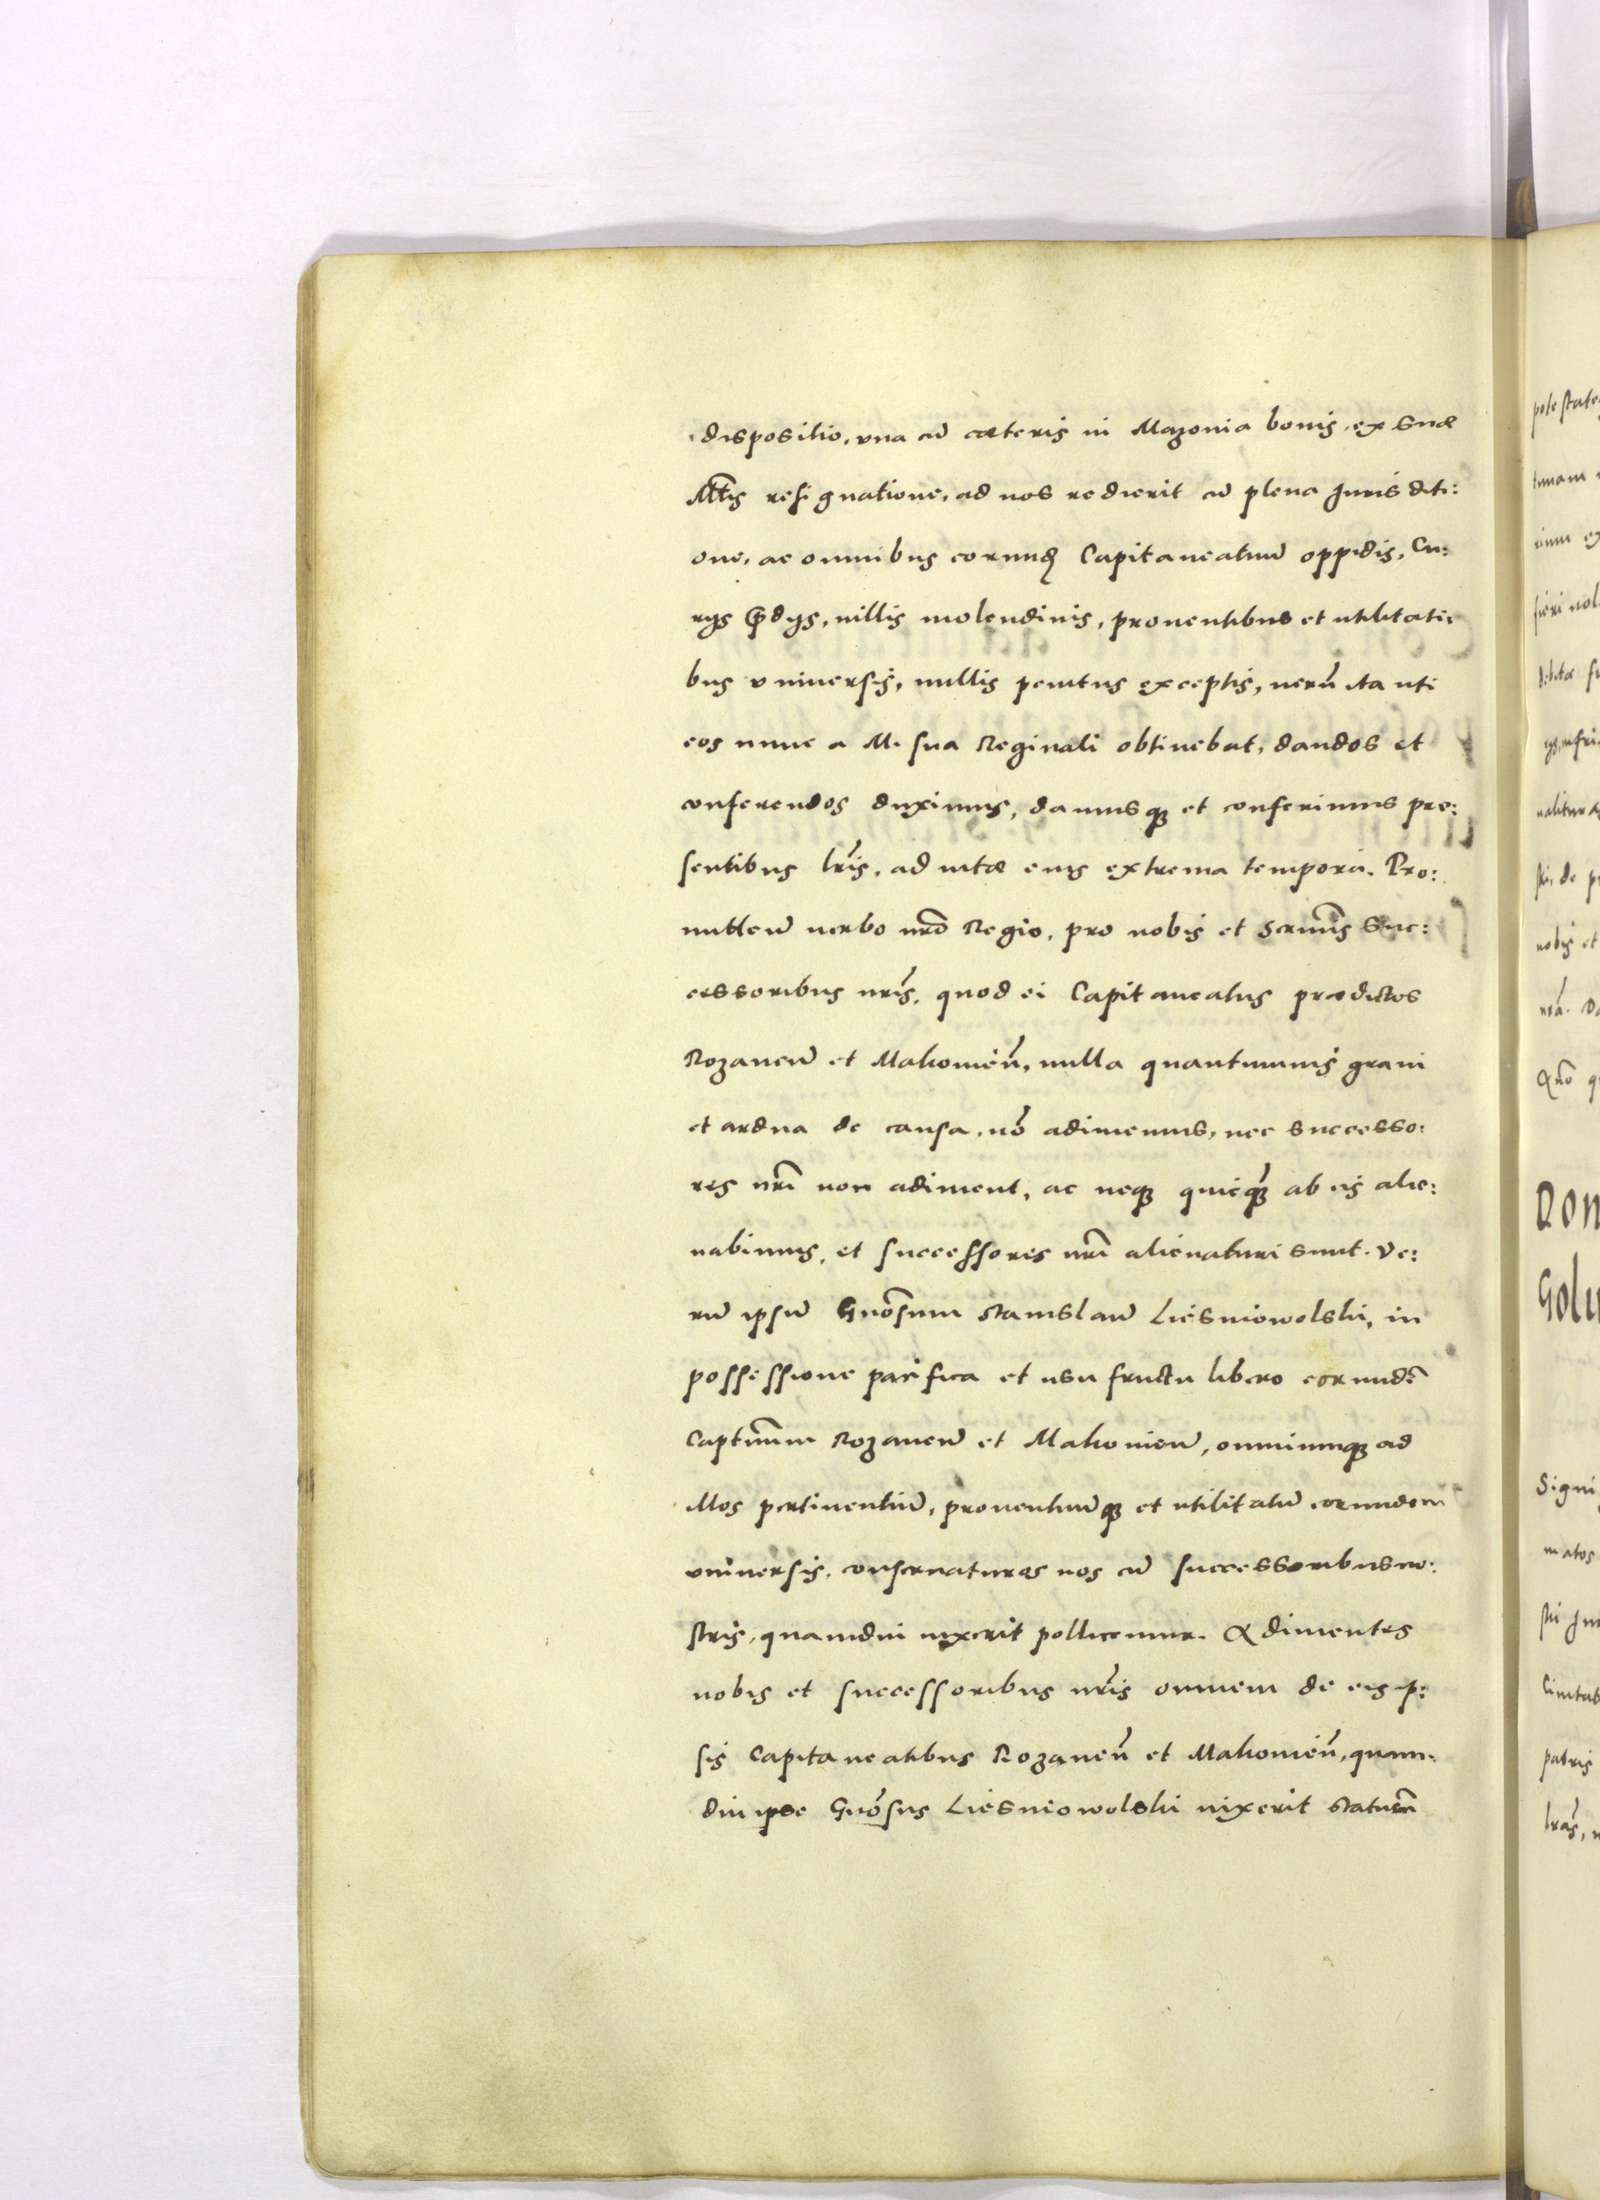 dispositio, vna cũ cæteris in Mazonia bonis, ex suæ
Mtis resignatione, ad nos redierit cũ plena Jurisditi:
one, ac omnibus eorundẽ Capitaneatuũ oppidis, Cu:
rijs p̃dijs, villis molendinis, prouentibus et utilitati:
bus vniuersis, nullis penitus exceptis, uerũ ita uti
eos nunc a M. sua Reginali obtinebat, dandos et
conferendos duximus, damusqꝫ et conferimus pre:
sentibus lr̃is, ad uitæ eius extrema tempora. Pro:
mittẽtes uerbo nr̃o Regio, pro nobis et Serm̃is Suc:
cessoribus nr̃is, quod ei Capitaneatus prædictos
Rozaneñ et Makouieñ, nulla quantumuis graui
et ardua de causa, nõ adimemus, nec successo:
res nr̃i non adiment, ac neqꝫ quicqꝫ̃ ab eis alie:
nabimus, et successores nr̃i alienaturi sunt. Ve:
rũ ipsũ Gñosum Stanislaũ Liesniowolski, in
possessione pacifica et usu fructu libero eorundẽ
Captũum Rozaneñ et Makouieñ, omniumqꝫ ad
illos pertinentiũ, prouentuũqꝫ et utilitatũ eorundem
vniuersis, conseruaturos nos cũ successoribus no:
stris, quamdiu uixerit pollicemur. Adimentes
nobis et successoribus nr̃is omnem de eis ip:
sis Capitaneatibus Rozaneñ et Makouieñ, quam:
diu ipse Gñosus Liesniowolski uixerit statueñ